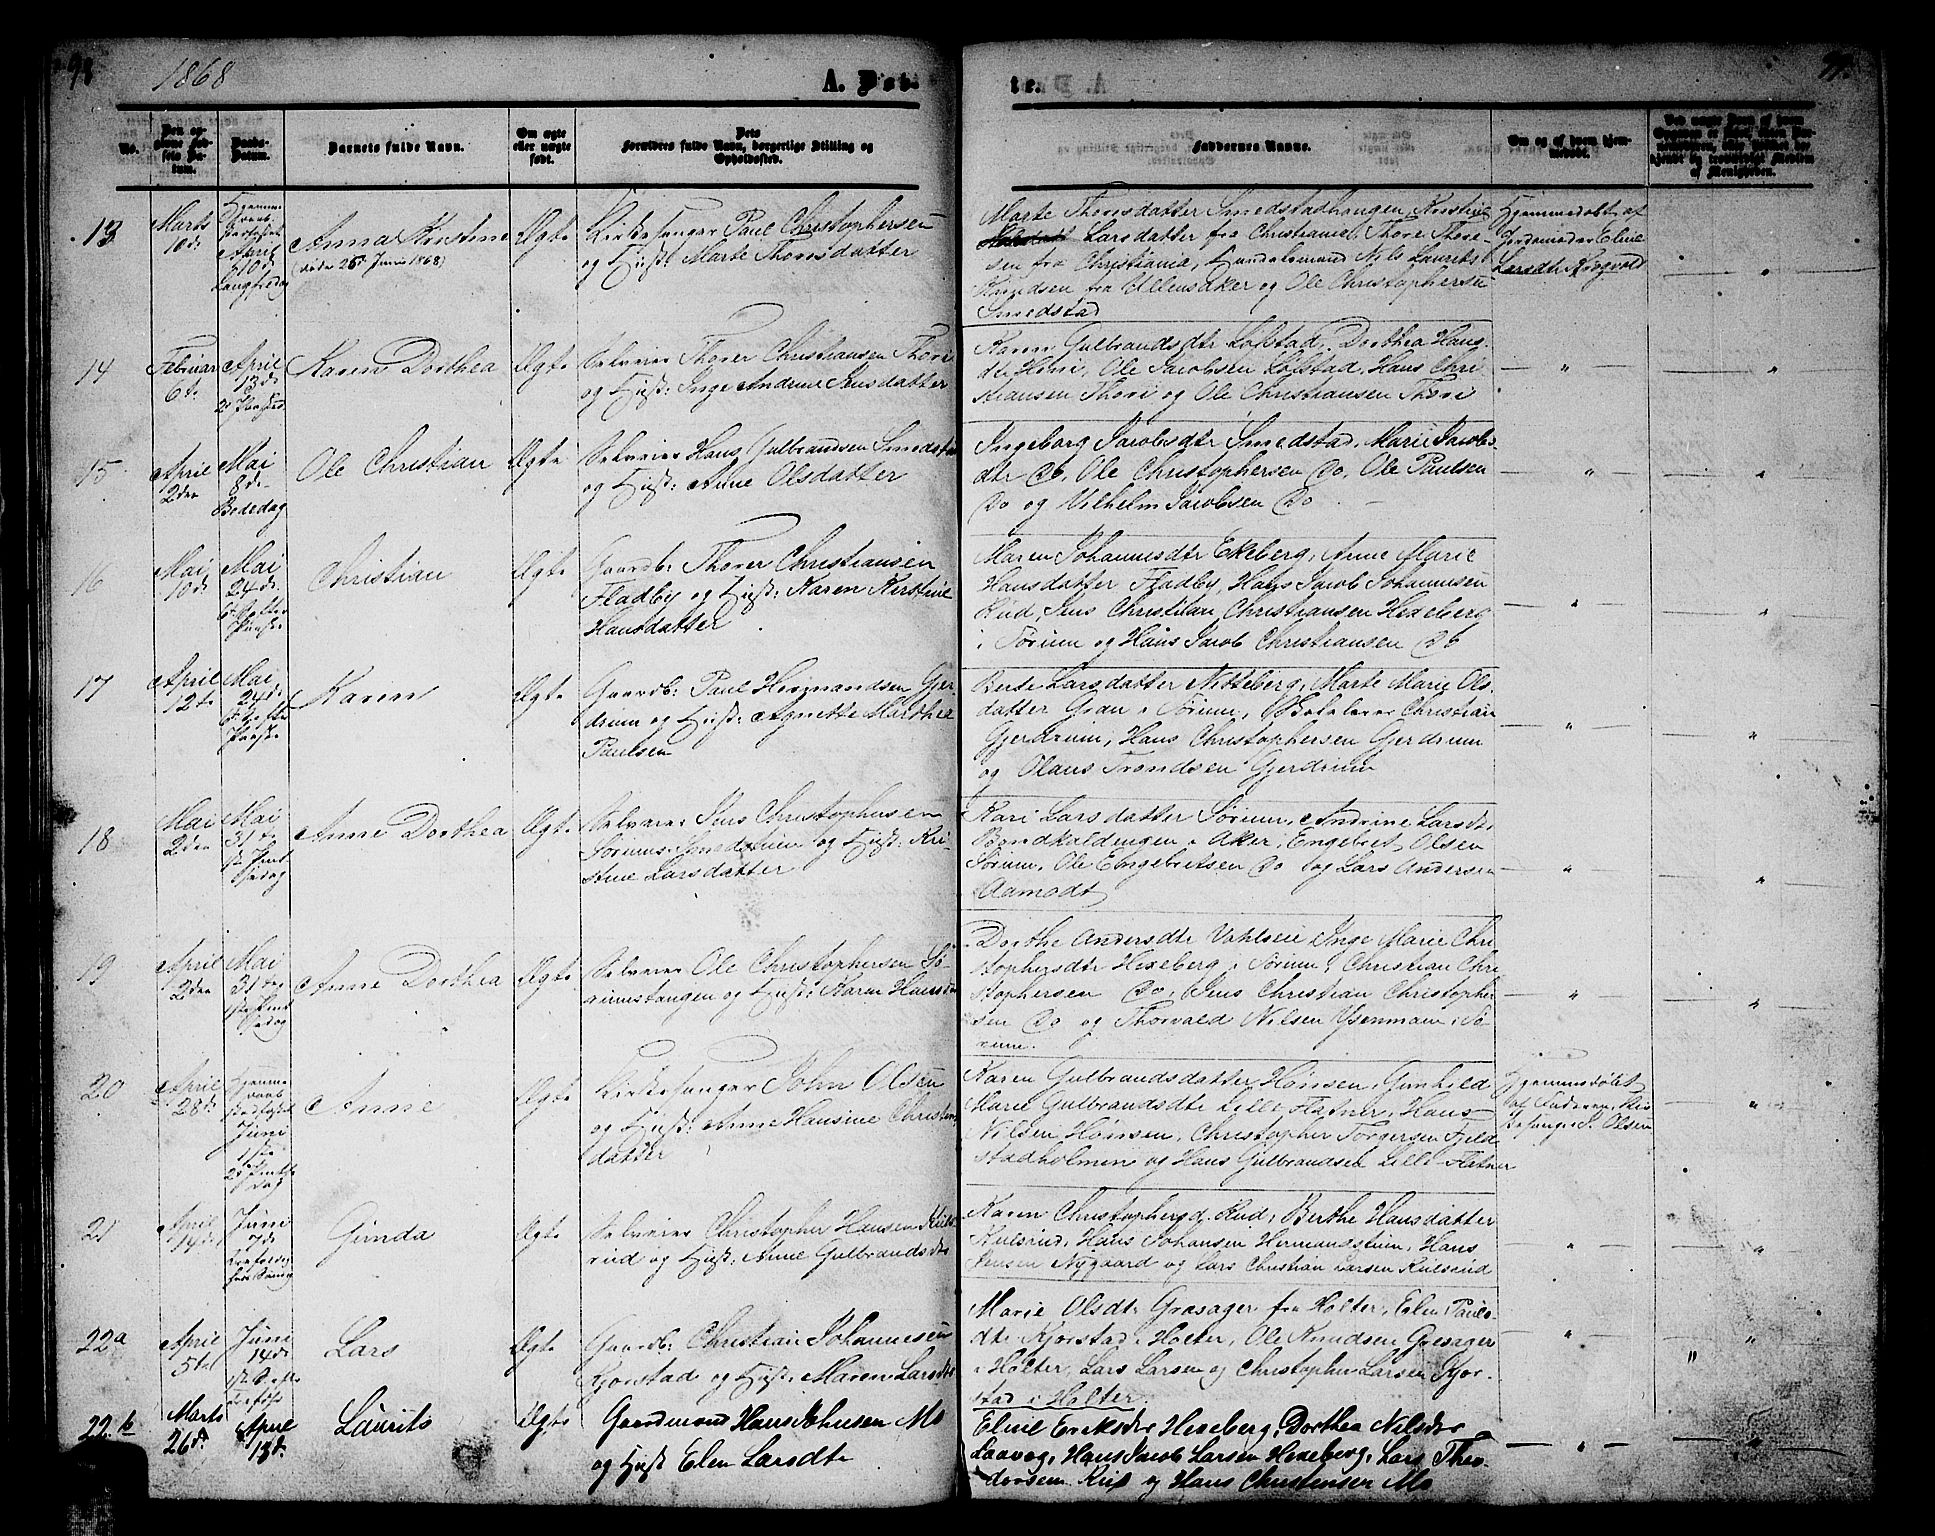 98
1868
A. Døb-
te.
No.
Barnets fulde Navn.
Om ægte
eller uægte
født.
Forældres fulde Navn, borgerlige Stilling og
Opholdssted.
Faddernes Navne.
Om og af hvem hjem-
medøbt.
13
Marts
10de
April
10de
Langfredag
Anna Kristine
(døde 26de Juni 1868)
Ægte
Kirkesanger Paul Christophersen
og Hust: Marte Thorsdatter
Marte Thorsdatter Smedstadhougen, Kristine
Larsdatter fra Christiania, Thore Thore-
sen fra Christiania, Handelsmand Nils Laurits
Knudsen fra Ullensaker og Ole Christophersen
Smedstad
Hjemmedøbt af
Jordemoder Eline
Larsdtr Krogvold
14
Februar
6te
April
13de
2 Paaskd.
Karen Dorthea
Ægte
Selveier Thorer Christiansen Thori
og Hust: Inge Andrine Jensdatter
Karen Gulbrandsdtr Lofstad, Dorthea Hans-
dtr Horni, Ole Jacobsen Lofstad, Hans Chri-
stiansen Thori og Ole Christiansen Thori
15
April
2den
Mai
8de
Bededag
Ole Christian
Ægte
Selveier Hans Gulbrandsen Smedstad
og Hust: Anne Olsdatter
Ingeborg Jacobsdtr Smedstad, Marie Jacobs-
dtr Do, Ole Christophersen Do, Ole Paulsen
Do og Vilhelm Jacobsen Do
16
Mai
10de
Mai
24de
6te S. efter
Paaske
Christian
Ægte
Gaardb: Thorer Christiansen
Fladby og Hust: Karen Kirstine
Hansdatter
Maren Johannesdtr Ekeberg, Anne Marie
Hansdatter Fladby, Hans Jacob Johannesen
Rud, Jens Christian Christiansen Hexeberg
i Sørum og Hans Jacob Christiansen Do
17
April
12te
Mai
24de
6te S. efter
Paaske
Karen
Ægte
Gaardb: Paul Hermandsen Gjer-
drum og Hust: Agnette Marthea
Paulsen
Berte Larsdatter Nitteberg, Marte Marie Ols-
datter Gran i Sørum, Christian
Gjerdrum, Hans Christophersen Gjerdrum
og Olaus Trondsen Gjerdrum
18
Mai
2den
Mai
31te
1ste Pint
sedag
Anne Dorthea
Ægte
Selveier Jens Christophersen
Sørums-Smedstuen og Hust: Kri-
stine Larsdatter
Kari Larsdatter Sørum, Andrine Larsdtr
Bondkaldengen i Aker, Engebret Olsen
Sørum, Ole Engebretsen Do og Lars Andersen
Aamodt
19
April
2den
Mai
31te
1ste Pint
sedag
Anne Dorthea
Ægte
Selveier Ole Christophersen Sø-
rumstangen og Hust: Karen Hansdtr
Dorthe Andersdtr Vahlseie, Inge Marie Chri
stophersdtr Hexeberg i Sørum, Christian Chri
stophersen Do, Jens Christian Christopher
sen Do og Thorvald Nilsen Ysenmain i Sø
rum.
20
April
28de
Juni
1ste
2d Pintse
dag
Anne
Ægte
Kirkesanger John Olsen
og Hust: Anne Hansine Christens
datter
Karen Gulbrandsdatter Hønsen, Gunhild
Marie Gulbrandsdtr Lille Flatner, Hans
Nilsen Hønsen, Christopher Torgersen Fjeld
stadholmen og Hans Gulbrandsen Lille-Flatner
Hjemmedøbt
af Faderen, Kir
kesanger J. Olsen
21
April
14de
Juni
7de
Trefoldig
heds Søndag
Ginda
Ægte
Selveier Christopher Hansen Kuls-
rud og Hust: Anne Gulbrandsdtr
Karen Christophersd. Rud, Berthe Hansdatter
Kulsrud, Hans Johansen Hermandstuen, Hans
Jensen Nygaard og Lars Christian Larsen Kulserud
22a
April
5te
Juni
14de
1ste S. efter
Trefold.
Lars
Ægte
Gaardb: Christian Johannesen
Kjorstad og Hust: Maren Larsdtr
Marie Olsdtr Grasager fra Holter, Elen Pauls
dtr Kjorstad i Holter, Ole Knudsen Gresager
i Holter, Lars Larsen og Christopher Larsen Kjor-
stad i Holter.
22 b
Marts
26de
April
13de
Laurits
Ægte
Gaardmand Hans Johnsen Mo
og Hust Elen Larsdtr
Eline Eriksdtr Hexeberg, Dorthea Nilsdtr
Laavog, Hans Jacob Larsen Hexeberg, Lars Theo-
dorsen Rud og Hans Christensen Mo